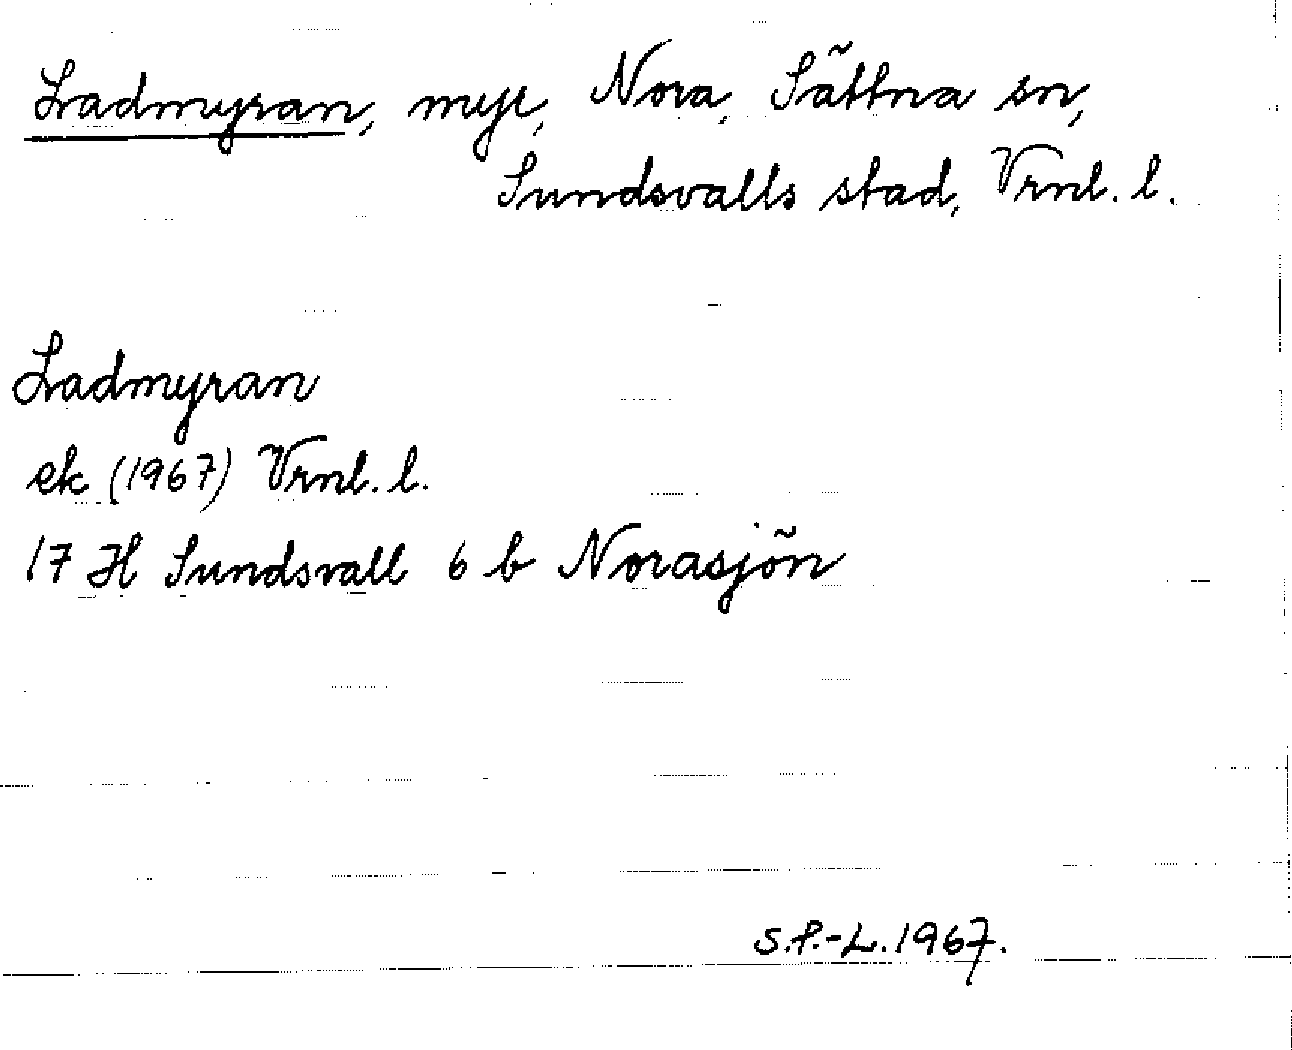 Ladmyran, myr, Nora, Sättna sn,
Sundsvalls stad, Vrnl. l.
Ladmyran
ek (1967) Vrnl. l.
17 H Sundsvall 6 b Norasjön
S.P.-L. 1967.